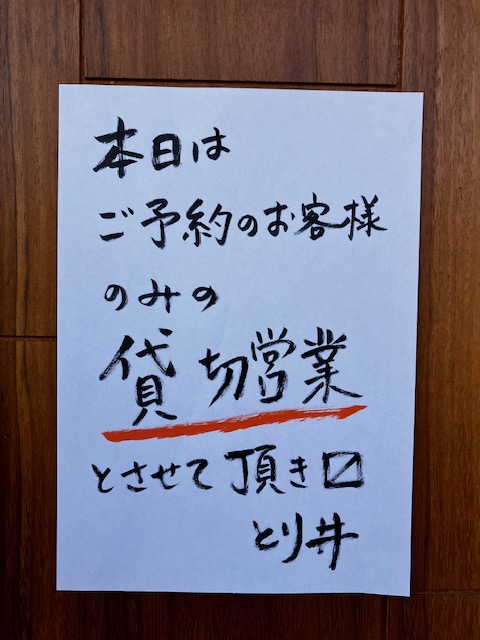 本日は
ご予約のお客様
のみの
貸切営業
とさせて頂き〼
とり井